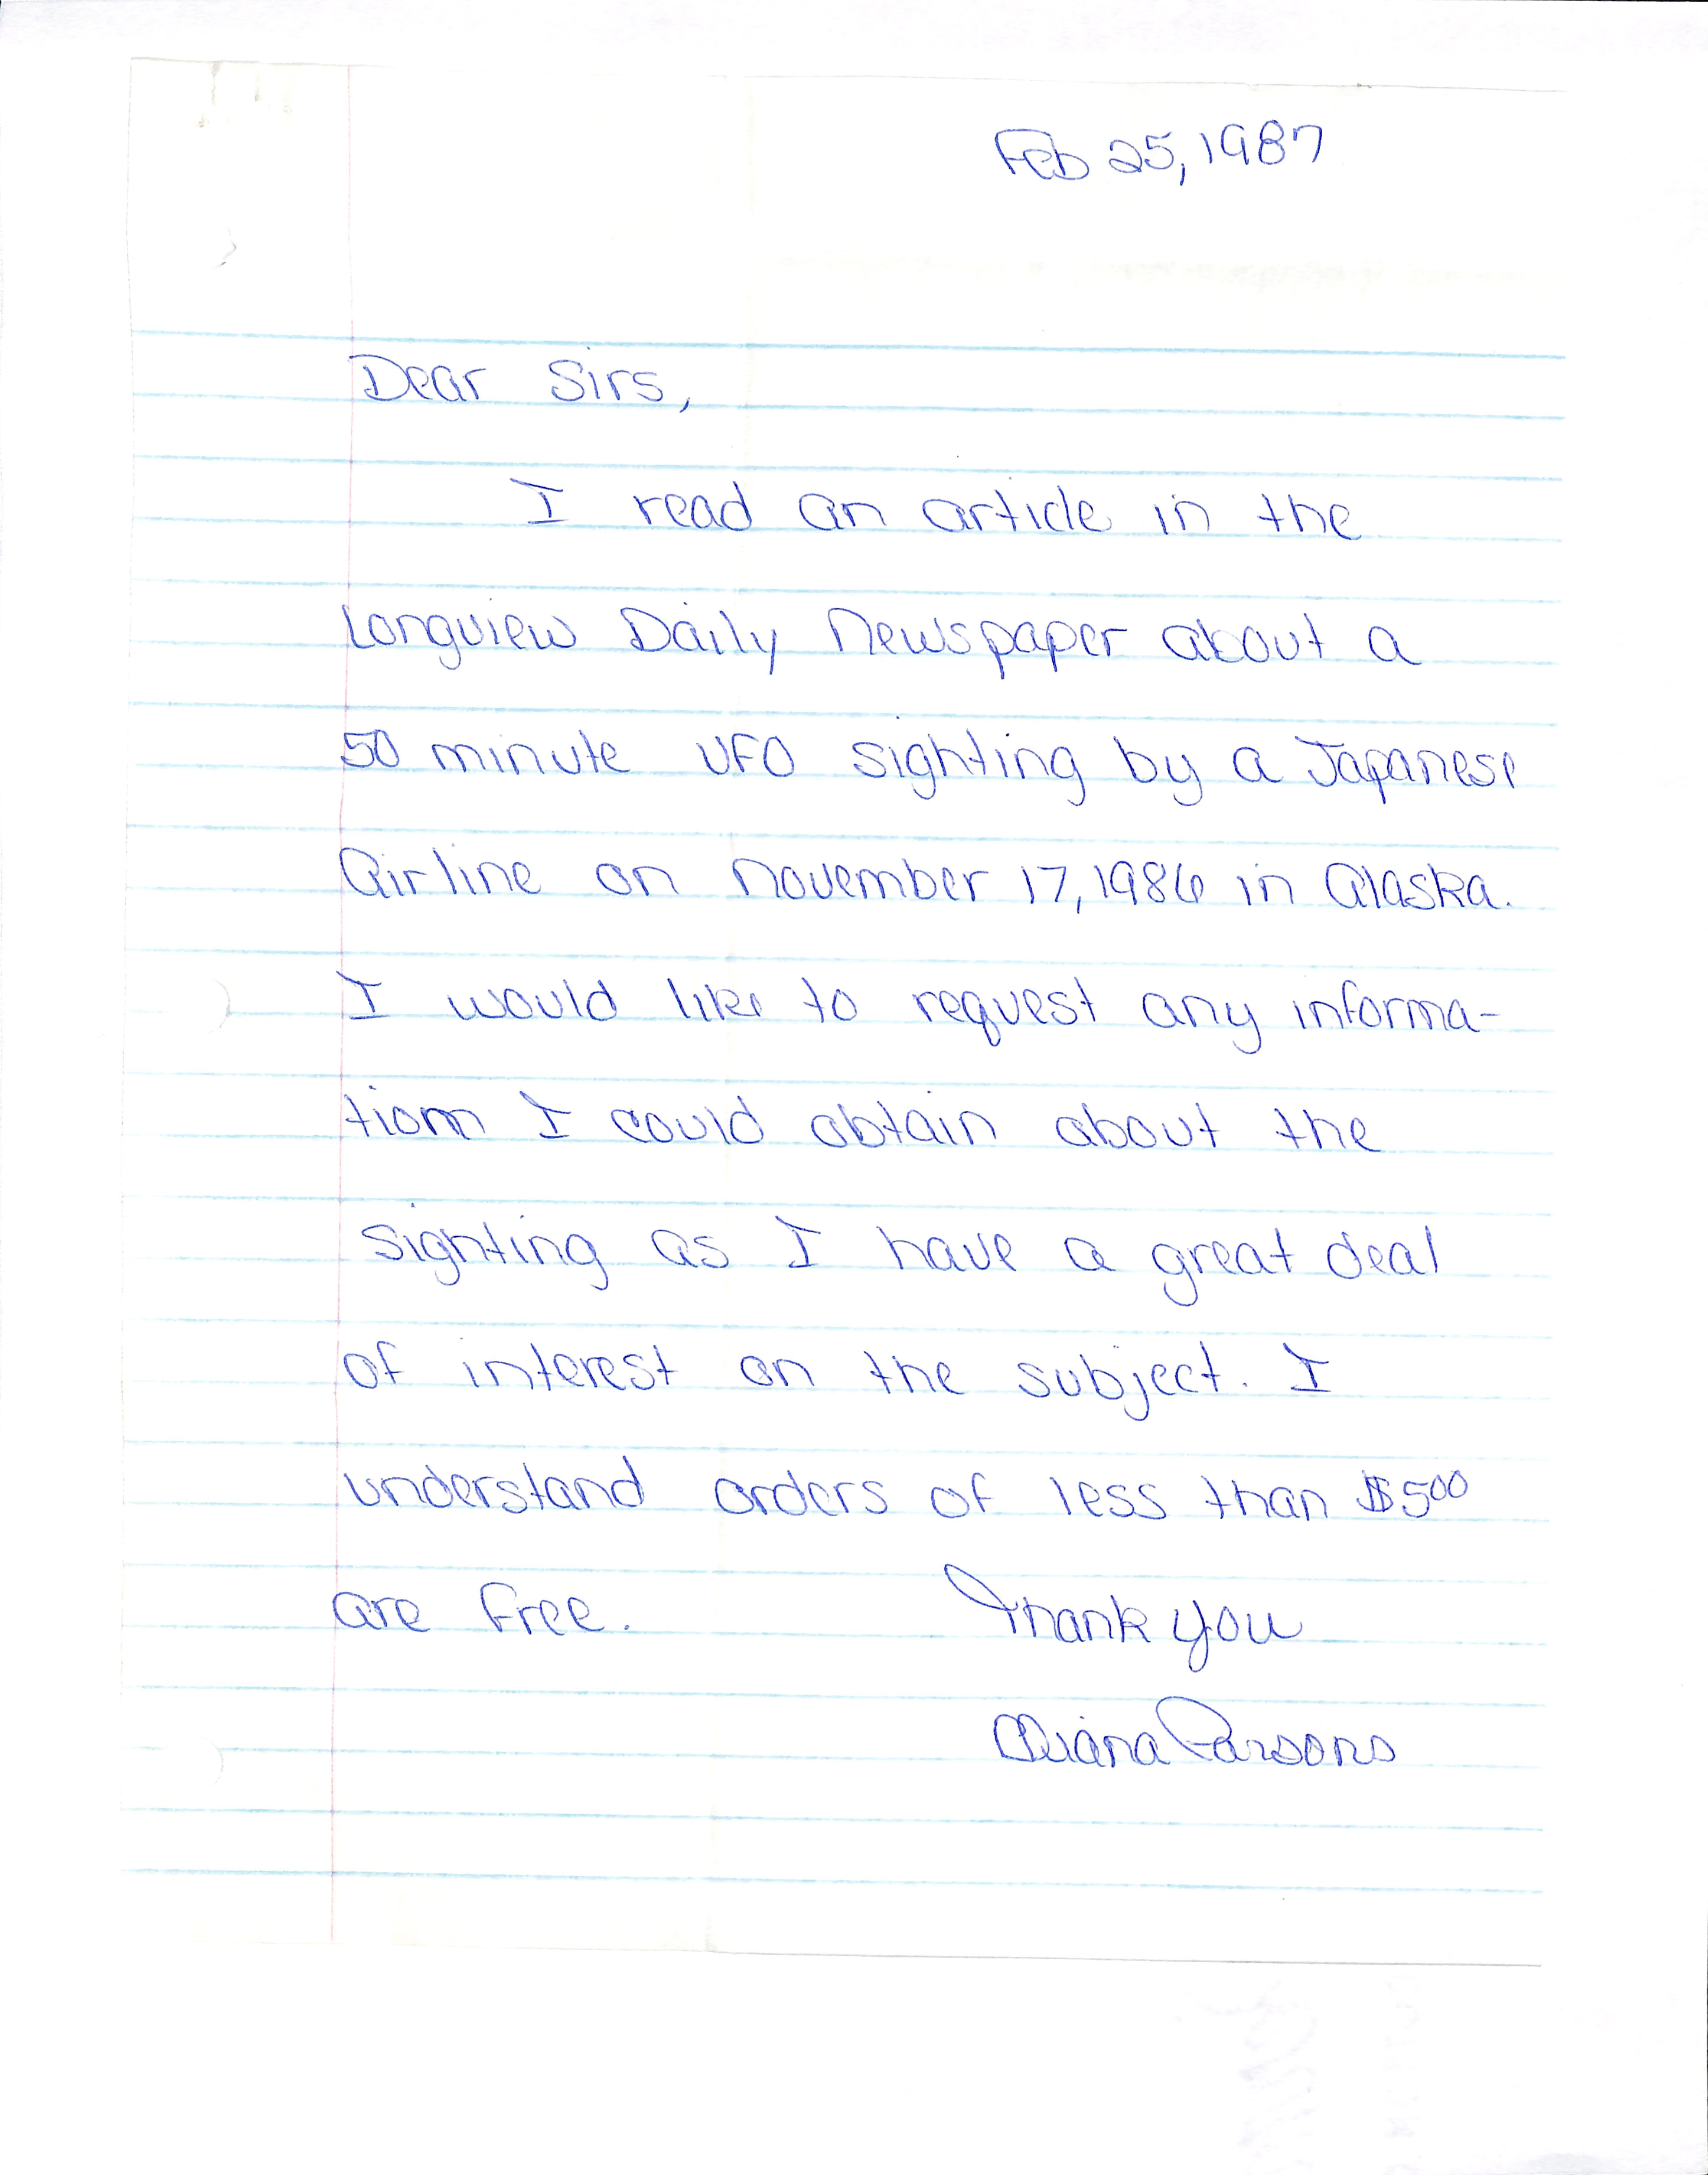 Feb 25, 1987
Dear Sirs,
I read an article in the
Longview Daily Newspaper about a
50 minute UFO sighting by a Japanese
Airline on November 17, 1986 in Alaska.
I would like to request any informa-
tion I could obtain about the
sighting as I have a great deal
of interest on the subject. I
understand orders of less than $500
are free. Thank you
Diana Parsons